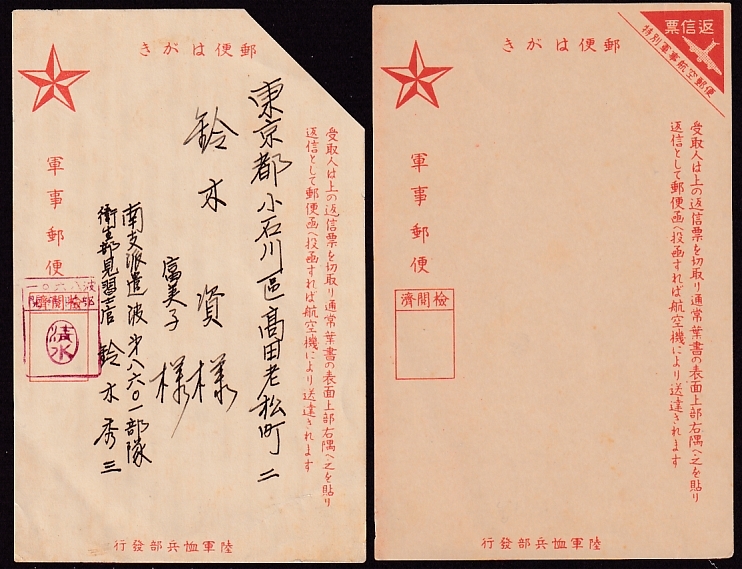 郵便はがき
受取人は上の返信票を切取り通常葉書の表面上部右隅へ之を貼り
返信として郵便函へ投函すれば航空機により送達されます
東京都小石川區高田老松町二
鈴木資様
富美子様
南支派遣波第八六〇一部隊
衛生部見習士官 鈴木秀三
軍事郵便
波八六〇一
檢閲濟
清水
陸軍恤兵部發行
返信票
特別軍事航空郵便
郵便はがき
受取人は上の返信票を切取り通常葉書の表面上部右隅へ之を貼り
返信として郵便函へ投函すれば航空機により送達されます
軍事郵便
檢閲濟
陸軍恤兵部發行